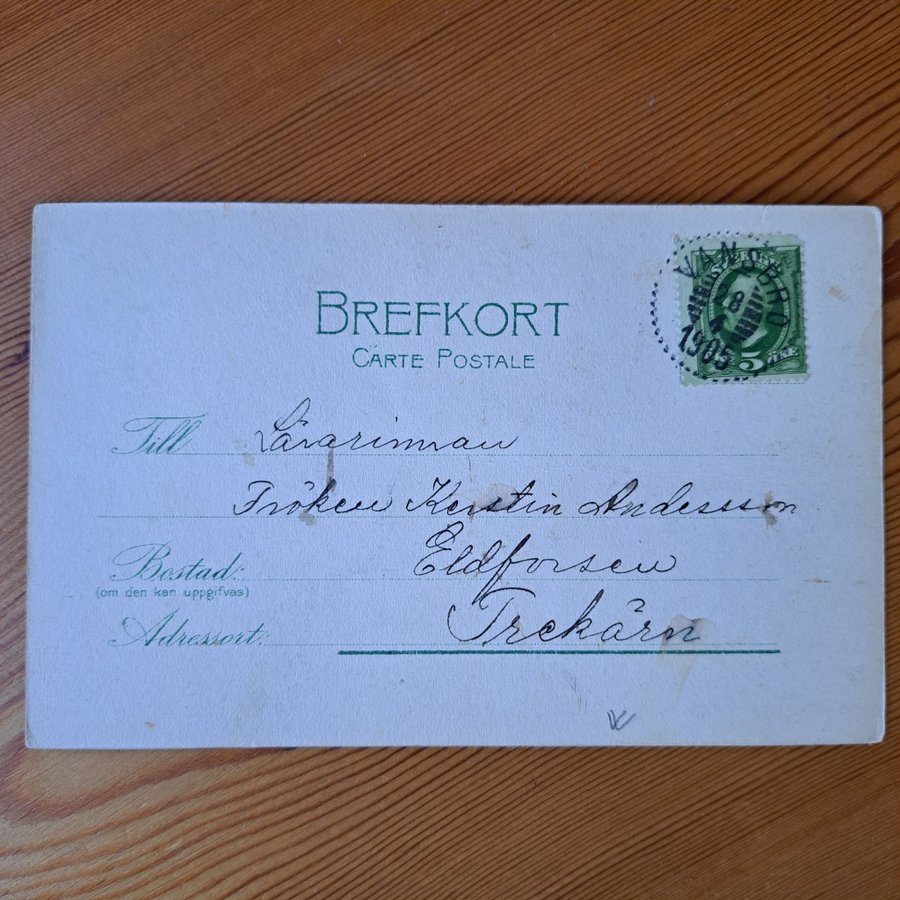 BREFKORT
CARTE POSTALE
VANSBRO
8
4
1905
5
Till
Lärarinnan
Fröken Kerstin Andersson
Bostad:
(om den kan uppgifvas)
Eldforsen
Adressort:
Trekärn